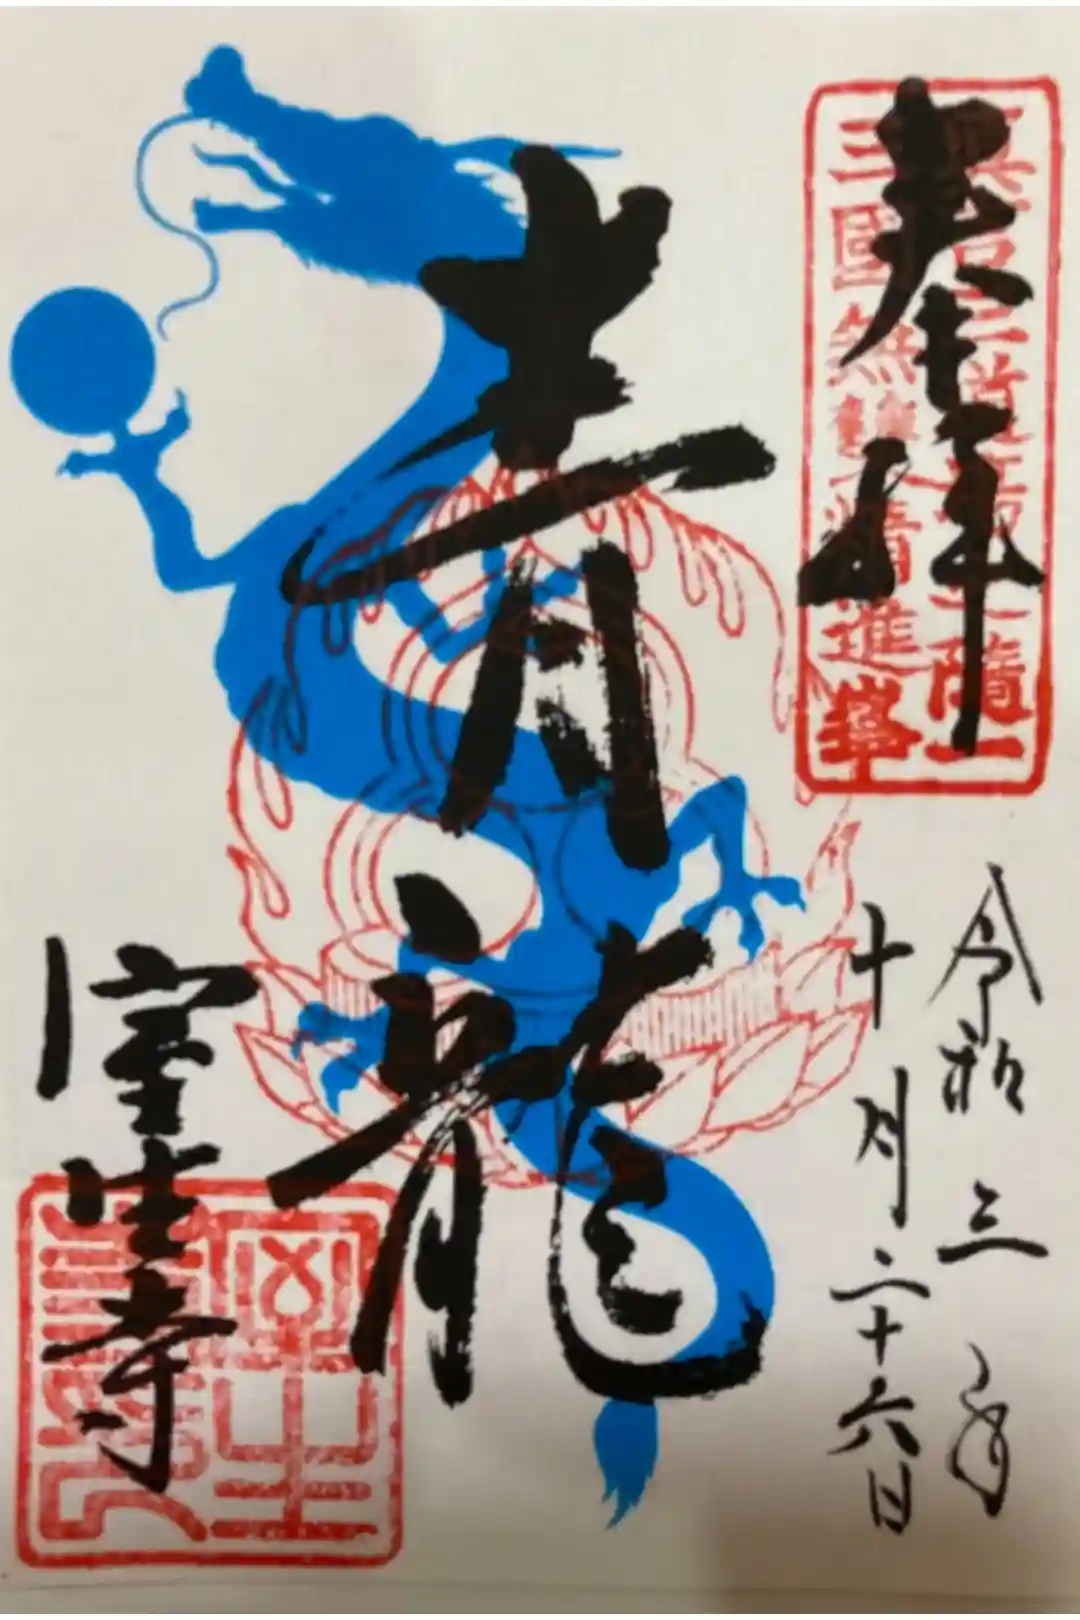 奉拝
三國無精進峯
令和三年
十月二十六日
青龍
室生寺